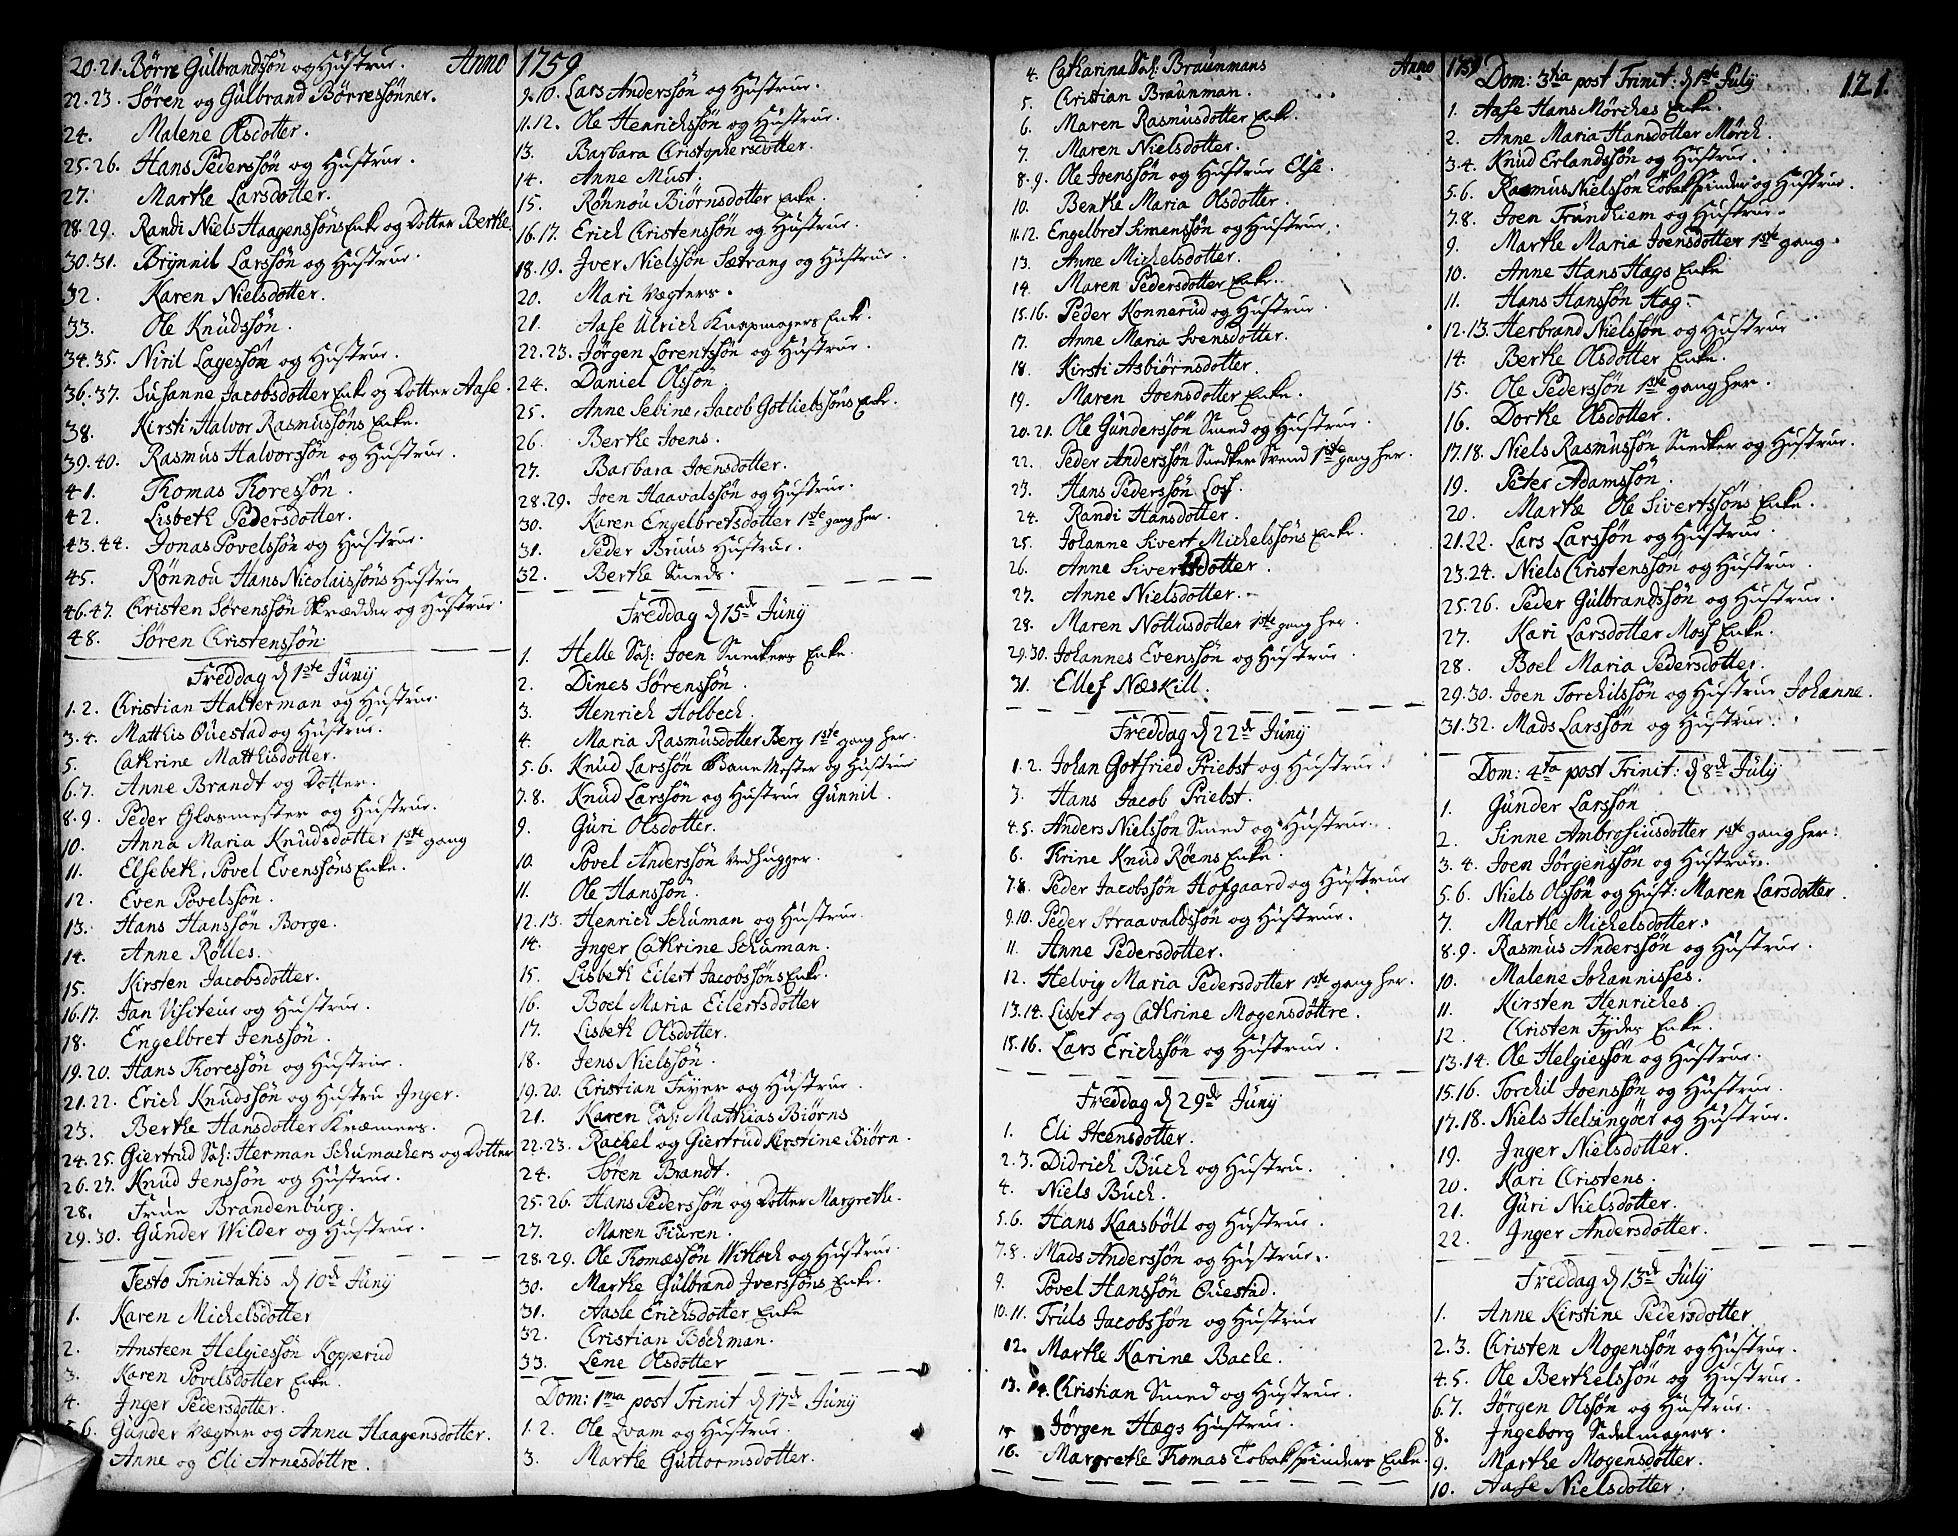 Anno 1759
20.21. Børre Gulbrandsøn og Hustrue.
22.23. Søren og Gülbrand Børressønner.
24. Malene Olsdotter.
25.26. Hans Pederssøn og Hustrue.
27. Marthe Larsdotter.
28.29. Randi Niels Haagenssøns Enke og Dotter Berthe.
30.31. Brynnil Larssøn og Hustrue.
32. Karen Nielsdotter.
33. Ole Knudssøn.
34.35. Niril Lagessøn og Hustrue.
36.37. Susanne Jacobsdotter Enke og Dotter Aase.
38. Kirsti Halvor Rasmussøns Enke.
39.40. Rasmus Halvorssøn og Hustrue.
41. Thomas Thoressøn.
42. Lisbeth Pedersdotter.
43.44. Jonas Povelssøn og Hustrue.
45. Rønnou Hans Nicolaissøns Hustrue
46.47. Christen Sørenssøn Skrædder og Hustrue.
48. Søren Christenssøn.
Freddag d 1ste Jünÿ
1.2. Christian Halterman og Hustrue.
3.4. Matthis Ouestad og Hustrue.
5. Cathrine Matthisdotter.
6.7. Anne Brandt og Dotter.
8.9. Peder Glasmester og Hustrue.
10. Anna Maria Knudsdotter 1ste gang
11. Elsebeth, Povel Evenssøns Enke.
12. Even Povelsøn.
13. Hans Hanssøn Borge.
14. Anne Rolles.
15. Kirsten Jacobsdotter.
16.17. Jan Visiteur og Hustrue.
18. Engelbret Jenssøn.
19.20. Hans Thoressøn og Hustrue.
21.22. Erich Knudssøn og Hustru Inger.
23. Berthe Hansdotter Kræmers.
24.25. Giertrud Sal: Herman Schumachers og Dotter
26.27. Knud Jenssøn og Hustrue.
28. Frue Brandenburg.
29.30. Gunder Wilder og Hustrue.
Festo Trinitatis d 10de Jünÿ
1. Karen Michelsdotter
2. Ansteen Helgiessøn Kopperud
3. Karen Povelsdotter Enke.
4. Inger Pedersdotter.
5.6. Gunder Vegter og Anna Haagensdotter.
Anne og Eli Arnesdottre.
9.10. Lars Anderssøn og Hustrue.
11.12. Ole Henrichssøn og Hustrue.
13. Barbara Christophersdotter.
14. Anne Must.
15. Rønnou Biørnsdotter Enke.
16.17. Erich Christenssøn og Hustrue.
18.19. Iver Nielssøn Sætrang og Hustrue.
20. Mari Vægters.
21. Aase Ulrich Knapmagers Enke.
22.23. Jørgen Lorentssøn og Hustrue.
24. Daniel Olssøn.
25. Anne Sebine, Jacob Gotliebssøns Enke.
26. Berthe Joens.
27. Barbara Joensdotter.
28.29. Joen Haavalssøn og Hustrue.
30. Karen Engelbretsdotter 1ste gang her.
31. Peder Bruus Hustrue.
32. Berthe Smeds.
Freddag d 15de Jünÿ
1. Helle Sal: Joen Snedkers Enke.
2. Dines Sørenssøn.
3. Henrich Holbech.
4. Maria Rasmusdotter Berg 1ste gang her.
5.6. Knud Larssøn Bane Mester og Hustrue
7.8. Knud Larssøn og Hustrue Gunnil.
9. Guri Olsdotter.
10. Povel Anderssøn Vedhugger.
11. Ole Hanssøn.
12.13. Henrich Schuman og Hustrue.
14. Inger Cathrine Schuman.
15. Lisbeth Eilert Jacobssøns Enke.
16. Boel Maria Eilertsdotter
17. Lisbeth Olsdotter.
18. Jens Nielssøn.
19.20. Christian Feyer og Hustrue.
21. Karen Sal: Mathias Biørns
22.23. Rachel og Giertrud Kirstine Biørn.
24. Søren Brandt.
25.26. Hans Pederssøn og Dotter Margrethe.
27. Maren Fiuren.
28.29. Ole Thomæssøn Witloch og Hustrue.
30. Marthe Gulbrand Iverssøns Enke.
31. Aasle Erichsdotter Enke
32. Christian Bochman.
33. Lene Olsdotter
Dom: 1ma post Trinit d 17de Jünÿ
1.2. Ole Qvam og Hustrue.
3. Marthe Guttormsdotter.
Anno 1759
121.
4. Catharina Sal: Braunmans
5. Christian Braunman.
6. Maren Rasmusdotter Enke.
7. Maren Nielsdotter.
8.9. Ole Joenssøn og Hustrue Else.
10. Benthe Maria Olsdotter.
11.12. Engelbret Simenssøn og Hustrue.
13. Anne Michelsdotter.
14. Maren Pedersdotter Enke.
15.16. Peder Konnerud og Hustrue.
17. Anne Maria Svensdotter.
18. Kirsti Asbiørnsdotter.
19. Maren Joensdotter Enke.
20.21. Ole Gunderssøn Smed og Hustrue.
22. Peder Anderssøn Snedker Svend 1ste gang her.
23. Hans Pederssøn Loss.
24. Randi Hansdotter.
25. Johanne Sivert Michelssøns Enke.
26. Anne Sivertsdotter.
27. Anne Nielsdotter.
28. Maren Nottusdotter 1ste gang her.
29.30. Johannes Evenssøn og Hustrue.
31. Ellef Næskill.
Freddag d 22de Jünÿ
1.2. Johan Gotfried Priebst og Hustrue.
3. Hans Jacob Priebst.
4.5. Anders Nielssøn Smed og Hustrue.
6. Thrine Knud Røens Enke.
7.8. Peder Jacobssøn Hofgaard og Hustrue
9.10. Peder Straavaldssøn og Hustrue.
11. Anne Pedersdotter.
12. Helvig Maria Pedersdotter 1ste gang her.
13.14. Lisbet og Cathrine Mogensdottre.
15.16. Lars Erichssøn og Hustrue.
Freddag d 29de Jünÿ
1. Eli Steensdotter.
2.3. Didrich Buch og Hustru.
4. Niels Buch.
5.6. Hans Kaasbøll og Hustrue.
7.8. Mads Anderssøn og Hustrue.
9. Povel Hanssøn Ouestad.
10.11. Truls Jacobssøn og Hustrue
12. Marthe Karine Bache.
13.14. Christian Smed og Hustrue.
15. Jørgen Hægs Hustrue.
16. Margrethe Thomas Tobakspinders Enke.
Dom: 3tia post Trinit: d 1ste Julÿ
1. Aase Hans Mørches Enke.
2. Anne Maria Hansdotter Mørch.
3.4. Knud Erlandssøn og Hustrue.
5.6. Rasmus Nielssøn Tobakspinder og Hustrue.
7.8. Joen Trundhiem og Hustrue.
9. Marthe Maria Joensdotter 1ste gang.
10. Anne Hans Hags Enke
11. Hans Hanssøn Hag.
12.13. Herbrand Nielssøn og Hustrue
14. Berthe Olsdotter Enke.
15. Ole Pederssøn 1ste gang her.
16. Dorthe Olsdotter.
17.18. Niels Rasmussøn Snedker og Hustrue.
19. Peter Adamssøn.
20. Marthe Ole Sivertssøns Enke.
21.22. Lars Larssøn og Hustrue.
23.24. Niels Christenssøn og Hustrue.
25.26. Peder Gulbrandssøn og Hustrue.
27. Kari Larsdotter Moss Enke.
28. Boel Maria Pedersdotter.
29.30. Joen Torchilssøn og Hustrue Johanne.
31.32. Mads Larssøn og Hustrue.
Dom: 4ta post Trinit: d 8de Julÿ
1. Gunder Larssøn
2. Sinne Ambrosiusdotter 1ste gang her.
3.4. Joen Jørgenssøn og Hustrue.
5.6. Niels Olssøn og Hust: Maren Larsdotter.
7. Marthe Michelsdotter.
8.9. Rasmus Anderssøn og Hustrue.
10. Malene Johannisses.
11. Kirsten Henriches.
12. Christen Jyder Enke.
13.14. Ole Helgiessøn og Hustrue.
15.16. Torchil Joenssøn og Hustrue.
17.18. Niels Helsingøer og Hustrue.
19. Inger Nielsdotter.
20. Kari Christens.
21. Guri Nielsdotter.
22. Inger Andersdotter.
Freddag d 13de Julÿ
1. Anne Kirstine Pedersdotter
2.3. Christen Mogenssøn og Hustrue.
4.5. Ole Berthelssøn og Hustrue.
6.7. Jørgen Olssøn og Hustrue.
8. Ingeborg Sadelmagers.
9. Marthe Mogensdotter.
10. Aase Nielsdotter.